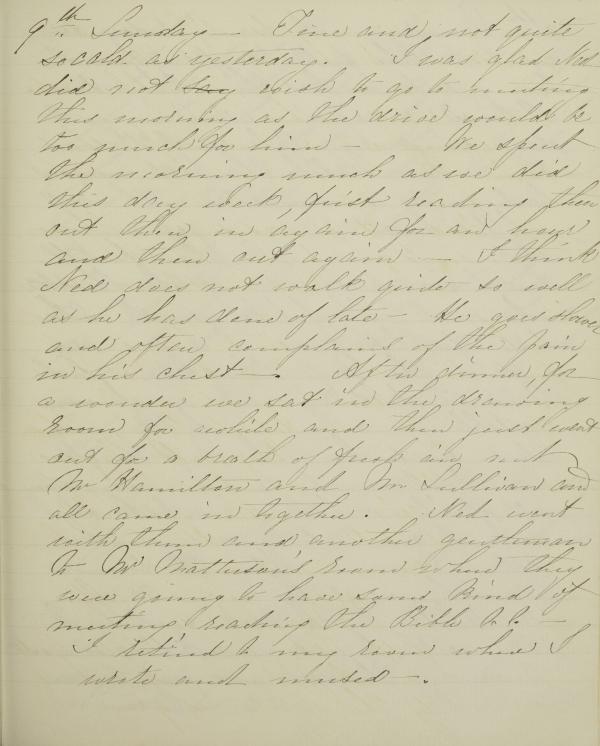 9th. Sunday — Fine and not quite
so cold as yesterday. I was glad Ned
did not say wish to go to meeting
this morning as the drive would be
too much for him — We spent
the morning much as we did
this day week, first reading then
out then in again for an hour
and then out again — I think
Ned does not walk quite so well
as he has done of late — He goes slower
and often complains of the pain
in his chest —. After dinner, for
a wonder we sat in the drawing
room for awhile and then just went
out for a breath of fresh air met
Mr Hamilton and Mr Sullivan and
all came in together. Ned went
with them and another gentleman
to Mr Matteson's room where they
were going to have some kind of
meeting reading the Bible &c. —
I retired to my room where I
wrote and mused —.